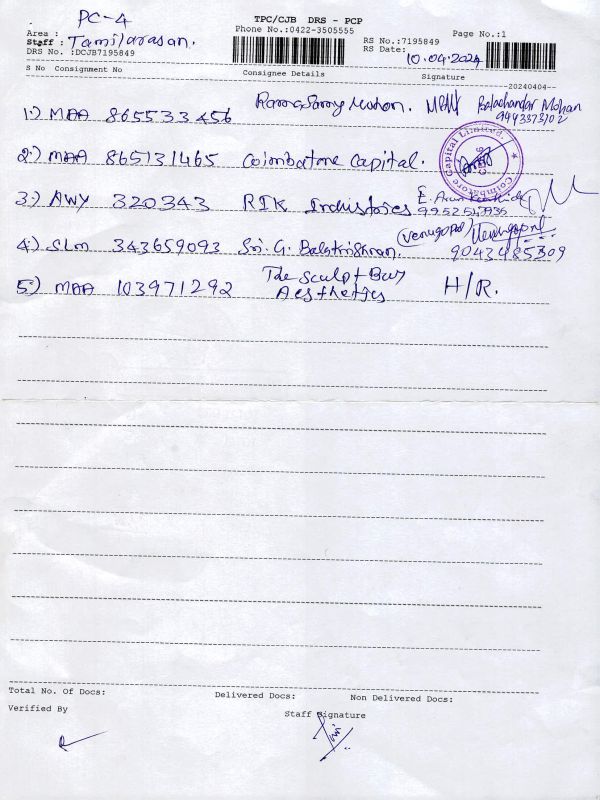 PC-4
TPC/CJB DRS - PCP
Phone No.:0422-3505555
Page No.:1
Area :
Staff : Tamilarasan.
DRS No. :DCJB7195849
RS No.:7195849
RS Date: 10.04.2024
S No Consignment No Consignee Details Signature
--20240404--
1) MAA 865533456 Mohan. Balachandar Mohan
9943373702
2) MAA 865131465 Coimbatore Capital.
Coimbatore Capital Limited
3) AWY 320343 RTK Industries E. Arun
4) SLM 343659093 Sri. G. Balakrishnan. (Venugopal) Venugopal
9043485309
5) MAA 103971292 The Sculpt Bay
Aesthetics H/R.
Total No. Of Docs: Delivered Docs: Non Delivered Docs:
Verified By
Staff Signature